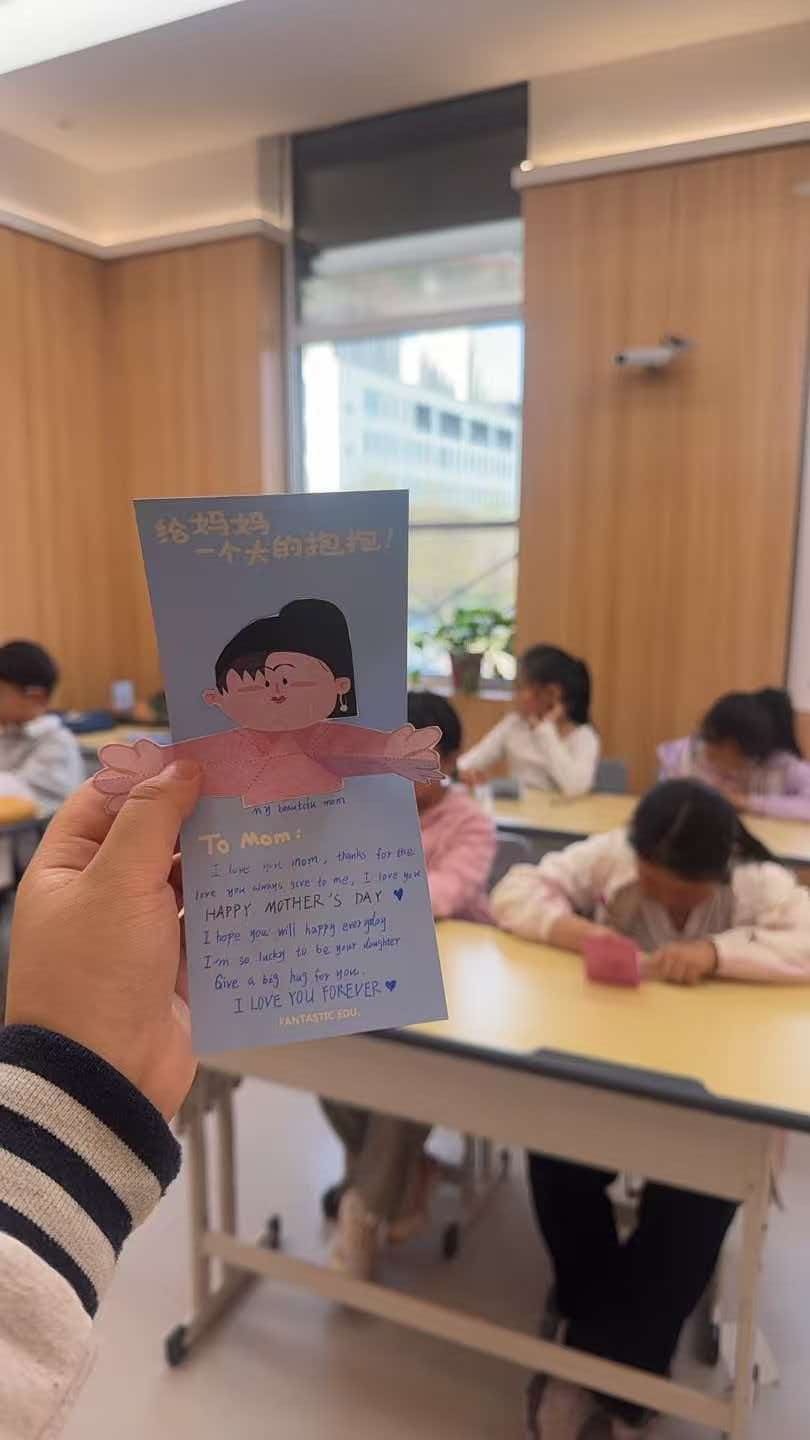 给妈妈
一个大的抱抱!
my beautiful mom
To Mom:
I love you mom, thanks for the
love you always give to me, I love you
HAPPY MOTHER'S DAY
I hope you will happy everyday
I'm so lucky to be your daughter
Give a big hug for you.
I LOVE YOU FOREVER
FANTASTIC EDU.